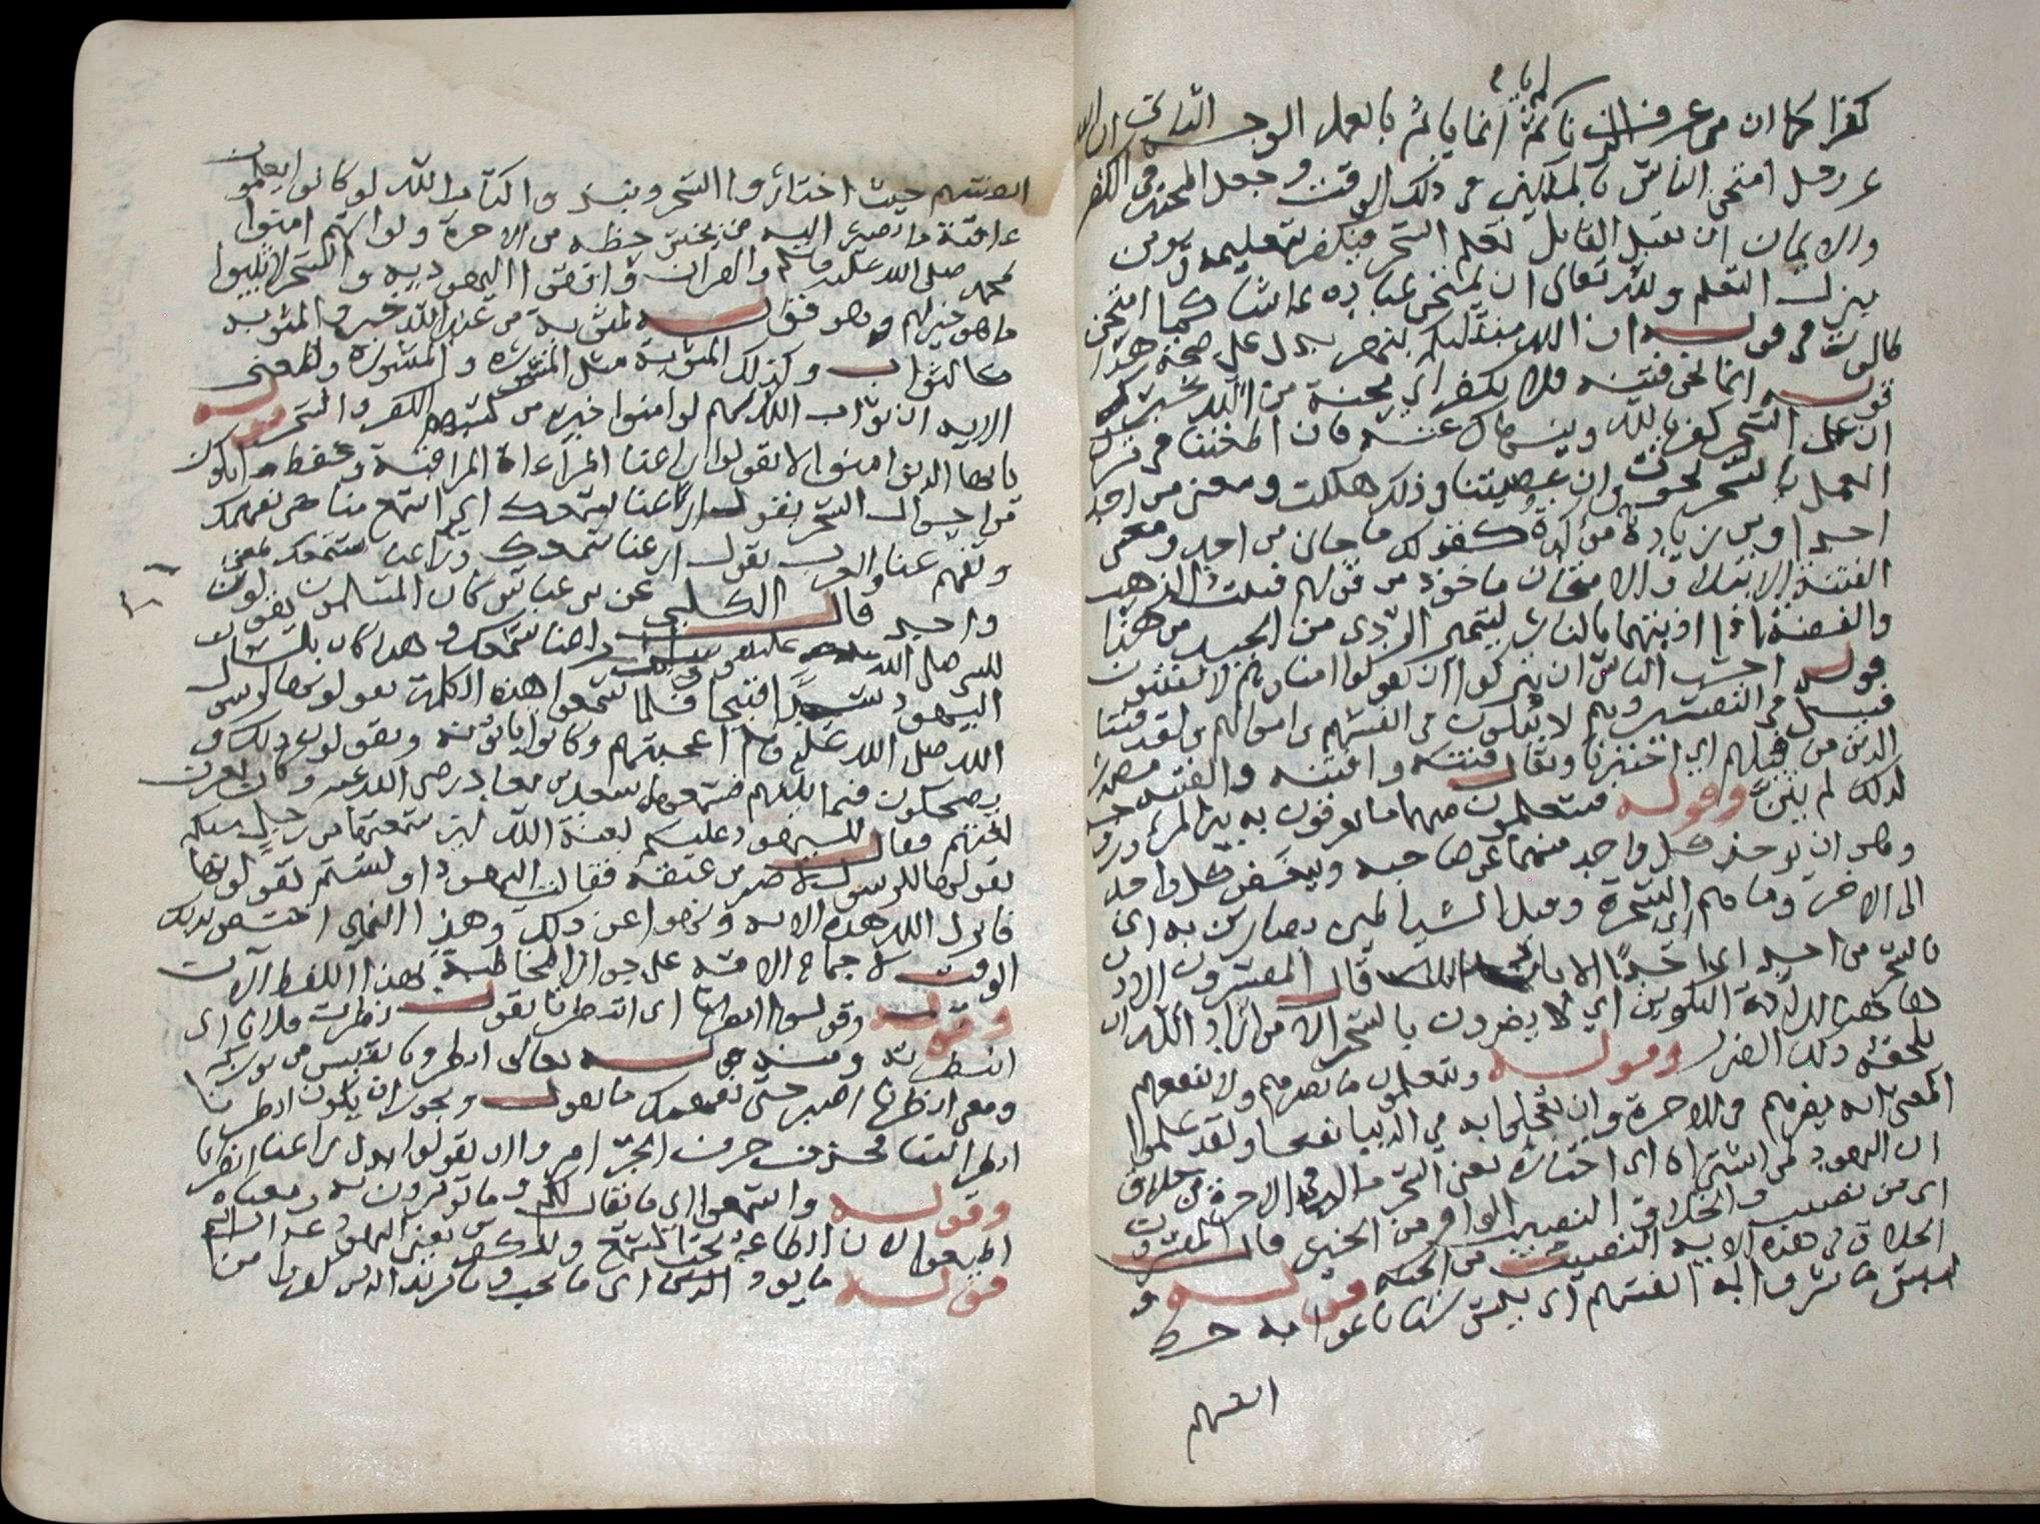 لم ياثم
كفرا كما ان من عرف الزنا لم ياثم انما ياثم بالعمل الوجه الثاني ان الله
عز وجل امتحن الناس بالملكين في ذلك الوقت وجعل المحنة في الكفر
والايمان ان يقبل القابل تعلم السحر فيكفر بتعليمه ويومن
بترك التعلم ولله تعالى ان يمتحن عباده بما شا كما امتحن
طالوت في قوله ان الله مبتليكم بنهر يدل على صحة هذا
قوله انما نحن فتنة فلا تكفر اي محنة من الله نخبرك
ان عمل السحر كفر بالله وينهاك عنه فان اطعتنا في ترك
العمل بالسحر نجوت وان عصيتنا في ذلك هلكت ومعنى من احد
احدا ومن زيادة مؤكدة كقولك ما جاني من احد ومعنى
الفتنة الابتلاء والامتحان ماخوذ من قولهم فتنت الذهب
والفضة اذا اذبتهما بالنار ليتميز الردي من الجيد من هذا
قوله احسب الناس ان يتركوا ان يقولوا امنا وهم لا يفتنون
قيل في التفسير وهم لا يبتلون في انفسهم واموالهم ولقد فتنا
الذين من قبلهم اي اختبرنا ويقال فتنته وافتنته والفتنة مصدر
لذلك لم يثن وقوله فيتعلمون منهما ما يفرقون به بين المرء وزوجه
وهو ان يوخذ كل واحد منهما عن صاحبه ويبغض كل واحد
الى الاخر وما هم اي السحرة وقيل الشياطين بضارين به اي
بالسحر من احد اي احدا الا باذن الله قال المفسرون الاذن
هاهنا الارادة التكوين اي لا يضرون بالسحر الا من اراد الله ان
يلحقه ذلك الضرر وقوله ويتعلمون ما يضرهم ولا ينفعهم
المعنى انه يضرهم في الاخرة وان تعجلوا به في الدنيا نفعا ولقد علموا
ان اليهود لمن اشتراه اي اختاره يعني السحر ما له في الاخرة من خلاق
اي من نصيب والخلاق النصيب الوافر من الخير قال المفسرون
الخلاق في هذه الاية النصيب من الجنة قوله و
لبيس ما شروا به انفسهم اي بيس شيئا باعوا به حظ
انفسهم
انفسهم حيث اختاروا السحر ونبذوا كتاب الله لو كانوا يعلمون
عاقبة ما يصير اليه من يخس حظه من الاخرة ولو انهم امنوا
بمحمد صلى الله عليه وسلم والقران واتقوا اليهودية والسحر لاثيبوا
ما هو خير لهم وهو قوله لمثوبة من عند الله خير والمثوبة
كالثواب وكذلك المثوبة مثل المشورة والمشورة والمعنى
الاية ان ثواب الله لهم لو امنوا خير من كسبهم الكفر والسحر قوله
يا ايها الذين امنوا لا تقولوا راعنا المراعاة المراقبة وحفظ ما يكون
من احوال الشئ يقول راعنا سمعك اي اسمع منا حتى نفهمك
وتفهم عنا والعرب تقول ارعنا سمعك وراعنا سمعك بمعنى
واحد قال الكلبي عن ابن عباس كان المسلمون يقولون
للنبي صلى الله عليه وسلم راعنا سمعك وهذا كان بلسان
اليهود سبا قبيحا فلما سمعوا هذه الكلمة يقولونها لرسول
الله صلى الله عليه وسلم اعجبتهم وكانوا ياتونه ويقولون ذلك و
يضحكون فيما بينهم فسمعها سعد بن معاذ رضي الله عنه وكان يعرف
لغتهم فقال لليهود عليكم لعنة الله لين سمعتها من رجل منكم
يقولها للرسول لاضربن عنقه فقالت اليهود اولستم تقولونها
فانزل الله هذه الاية ونهوا عن ذلك وهذا النهي اختص بذلك
الوقت لاجماع الامة على جواز المخاطبة بهذا اللفظ الان
وقوله وقولوا انظرنا اي انتظرنا يقول نظرت فلانا اي
انتظرته ومنه قوله تعالى انظرونا نقتبس من نوركم
ومعنى انظرنا اصبر حتى نفهمك ما نقول ويجوز ان يكون انظرنا
انظر الينا فحذف حرف الجر امروا ان يقولوا بدل راعنا انظرنا
وقوله واسمعوا اي ما يقال لكم وما تومرون به ومعناه
اطيعوا لان الطاعة تحت السمع وللكافرين يعني اليهود عذاب اليم
قوله ما يود الذين اي ما يحب وما يريد الذين كفروا من